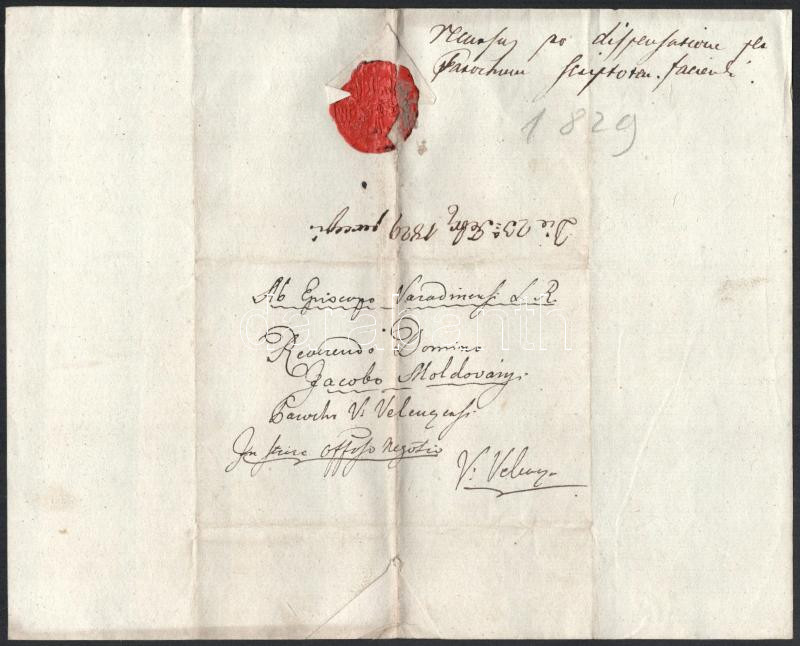 Recursus pro dispensatione per
Parochum scriptoten. faciendi.
1829
Die 23a Febr 1829 percepi
Ab Episcopo Varadinensi L. R.
darabanth
Reverendo Domino
Jacobo Moldoványi
Parocho V. Velenczensi
In stricte Officioso Negotio
V. Velencze